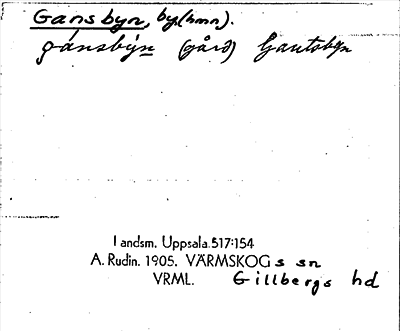 Gansbyn, by(hmn).
gánsbýn (gård) Gautsbyn
Landsm. Uppsala 517:154
A. Rudin. 1905. VÄRMSKOGs sn
VRML. Gillbergs hd